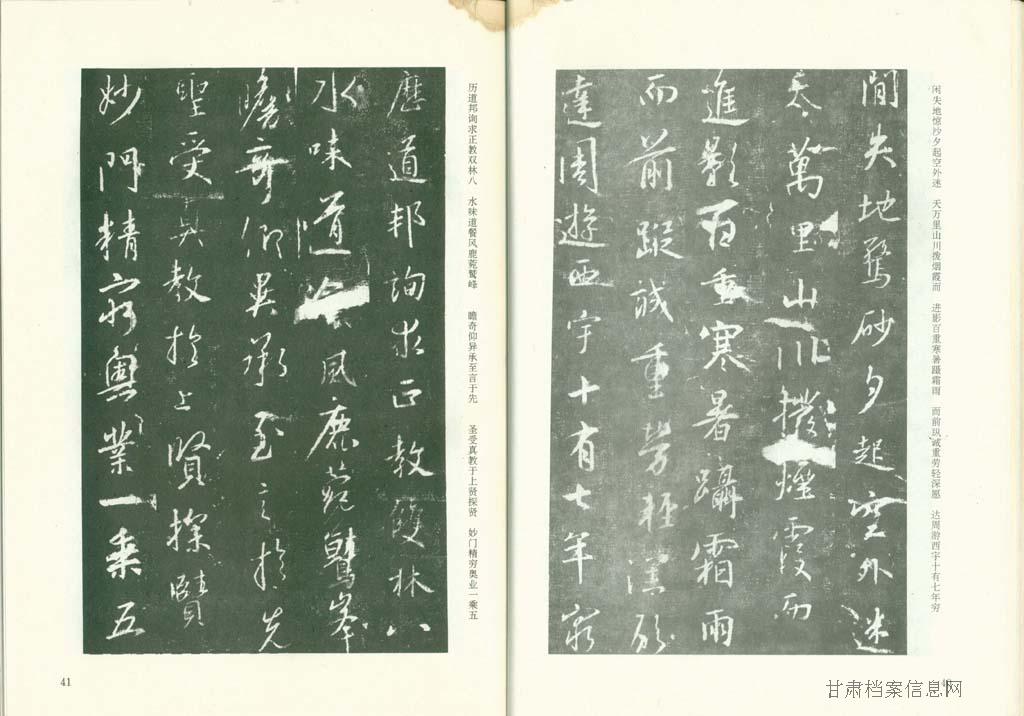 闲失地惊沙夕起空外迷 天万里山川拨烟霞而 进影百重寒暑蹑霜雨 而前纵诚重劳轻深愿 达周游西宇十有七年穷
閒失地驚砂夕起空外迷
天萬里山川撥煙霞而
進影百重寒暑躡霜雨
而前蹤誠重勞輕深願
達周遊西宇十有七年窮
历道邦询求正教双林八 水味道餐风鹿菀鹫峰 瞻奇仰异承至言于先 圣受真教于上贤探贤 妙门精穷奥业一乘五
歷道邦詢求正教雙林八
水味道飡風鹿菀鷲峯
瞻奇仰異承至言於先
聖受真教於上賢探賾
妙門精窮奧業一乘五
41
甘肃档案信息网